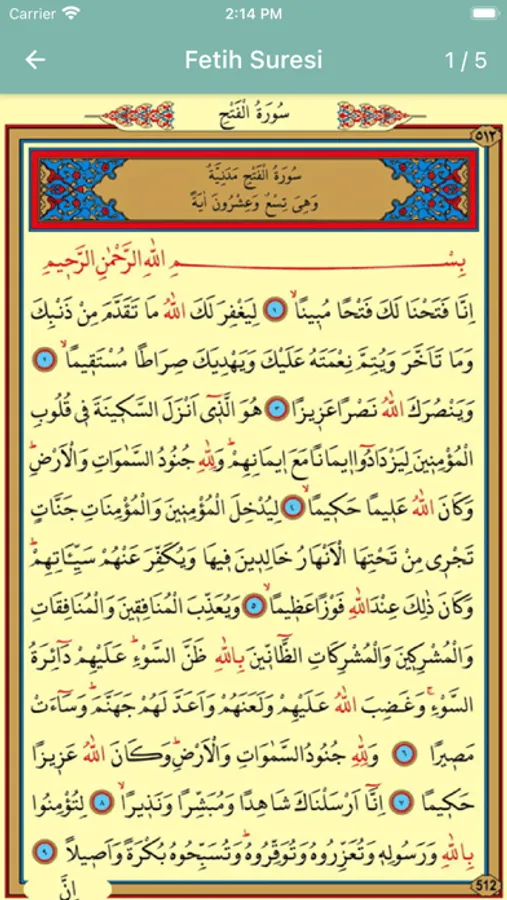 Carrier 2:14 PM
Fetih Suresi 1 / 5
سُورَةُ الْفَتْحِ
٥١٢
سُورَةُ الْفَتْحِ مَدَنِيَّةٌ
وَهِيَ تِسْعٌ وَعِشْرُونَ اٰيَةً
بِسْمِ اللّٰهِ الرَّحْمٰنِ الرَّحٖيمِ
اِنَّا فَتَحْنَا لَكَ فَتْحًا مُبٖينًاۙ ١ لِيَغْفِرَ لَكَ اللّٰهُ مَا تَقَدَّمَ مِنْ ذَنْبِكَ
وَمَا تَاَخَّرَ وَيُتِمَّ نِعْمَتَهُ عَلَيْكَ وَيَهْدِيَكَ صِرَاطًا مُسْتَقٖيمًاۙ ٢
وَيَنْصُرَكَ اللّٰهُ نَصْرًا عَزٖيزًا ٣ هُوَ الَّذٖٓى اَنْزَلَ السَّكٖينَةَ فٖى قُلُوبِ
الْمُؤْمِنٖينَ لِيَزْدَادُٓوا اٖيمَانًا مَعَ اٖيمَانِهِمْۜ وَلِلّٰهِ جُنُودُ السَّمٰوَاتِ وَالْاَرْضِۜ
وَكَانَ اللّٰهُ عَلٖيمًا حَكٖيمًاۙ ٤ لِيُدْخِلَ الْمُؤْمِنٖينَ وَالْمُؤْمِنَاتِ جَنَّاتٍ
تَجْرٖى مِنْ تَحْتِهَا الْاَنْهَارُ خَالِدٖينَ فٖيهَا وَيُكَفِّرَ عَنْهُمْ سَيِّـَٔاتِهِمْۜ
وَكَانَ ذٰلِكَ عِنْدَ اللّٰهِ فَوْزًا عَظٖيمًاۙ ٥ وَيُعَذِّبَ الْمُنَافِقٖينَ وَالْمُنَافِقَاتِ
وَالْمُشْرِكٖينَ وَالْمُشْرِكَاتِ الظَّٓانّٖينَ بِاللّٰهِ ظَنَّ السَّوْءِۜ عَلَيْهِمْ دَٓائِرَةُ
السَّوْءِۚ وَغَضِبَ اللّٰهُ عَلَيْهِمْ وَلَعَنَهُمْ وَاَعَدَّ لَهُمْ جَهَنَّمَۜ وَسَٓاءَتْ
مَصٖيرًا ٦ وَلِلّٰهِ جُنُودُ السَّمٰوَاتِ وَالْاَرْضِۜ وَكَانَ اللّٰهُ عَزٖيزًا
حَكٖيمًا ٧ اِنَّٓا اَرْسَلْنَاكَ شَاهِدًا وَمُبَشِّرًا وَنَذٖيرًاۙ ٨ لِتُؤْمِنُوا
بِاللّٰهِ وَرَسُولِهٖ وَتُعَزِّرُوهُ وَتُوَقِّرُوهُۜ وَتُسَبِّحُوهُ بُكْرَةً وَاَصٖيلًا ٩
512
اِنَّ